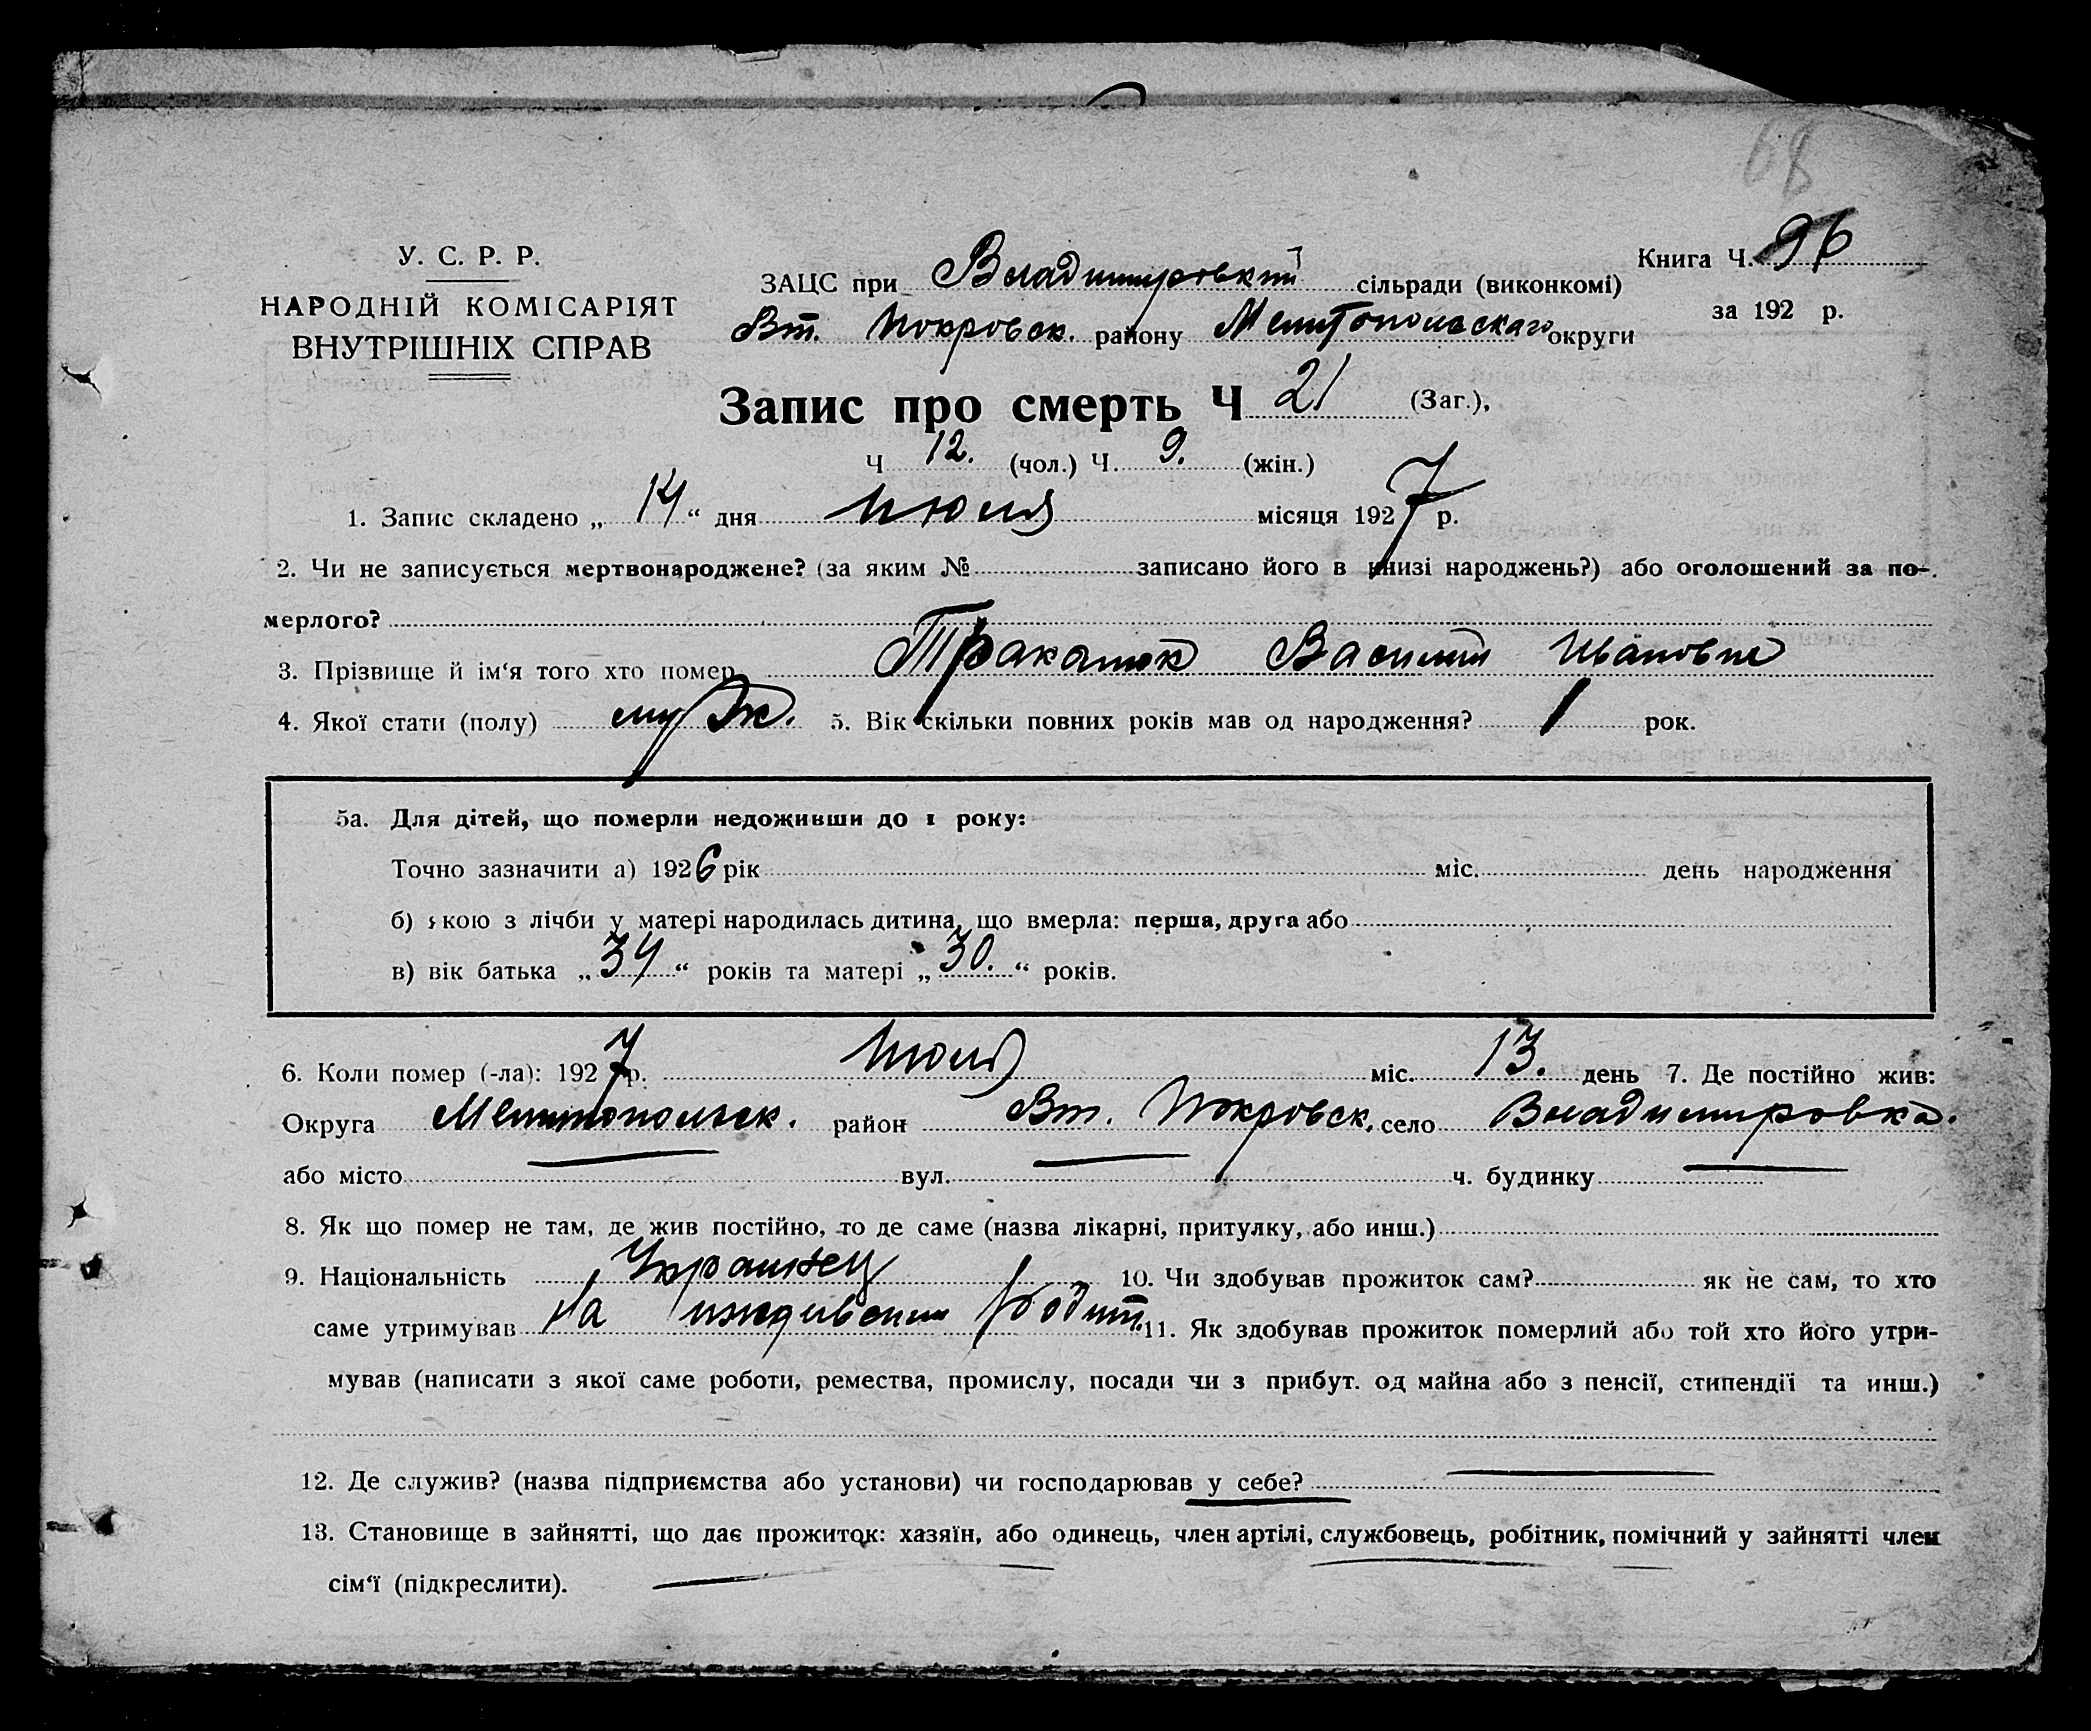 68
У. С. Р. Р.
НАРОДНІЙ КОМІСАРІЯТ
ВНУТРІШНІХ СПРАВ
ЗАЦС при Владимировкт сільради (виконкомі)
Вт. Покровск. району Мелитопольскаго округи
Книга Ч. 96
за 192 р.
Запис про смерть Ч 21 (Заг.),
Ч 12. (чол.) Ч. 9. (жін.)
1. Запис складено „ 14 “ дня Июля місяця 1927 р.
2. Чи не записується мертвонароджене? (за яким № записано його в книзі народжень?) або оголошений за по-
мерлого?
3. Прізвище й ім‘я того хто помер Тракатюк Василий Иванович
4. Якої стати (полу) муж. 5. Вік скільки повних років мав од народження? 1 рок.
5а. Для дітей, що померли недоживши до 1 року:
Точно зазначити а) 1926 рік міс. день народження
б) якою з лічби у матері народилась дитина, що вмерла: перша, друга або
в) вік батька „ 34 “ років та матері „ 30. “ років.
6. Коли помер (-ла): 1927 р. Июля міс. 13. день 7. Де постійно жив:
Округа Мелитопольск. район Вт. Покровск. село Владимировка.
або місто вул. ч. будинку
8. Як що помер не там, де жив постійно, то де саме (назва лікарні, притулку, або инш.)
9. Національність Украинец 10. Чи здобував прожиток сам? як не сам, то хто
саме утримував На иждивении 11. Як здобував прожиток померлий або той хто його утри-
мував (написати з якої саме роботи, ремества, промислу, посади чи з прибут. од майна або з пенсії, стипендії та инш.)
12. Де служив? (назва підприємства або установи) чи господарював у себе?
13. Становище в зайнятті, що дає прожиток: хазяїн, або одинець, член артілі, службовець, робітник, помічний у зайнятті член
сім‘ї (підкреслити).